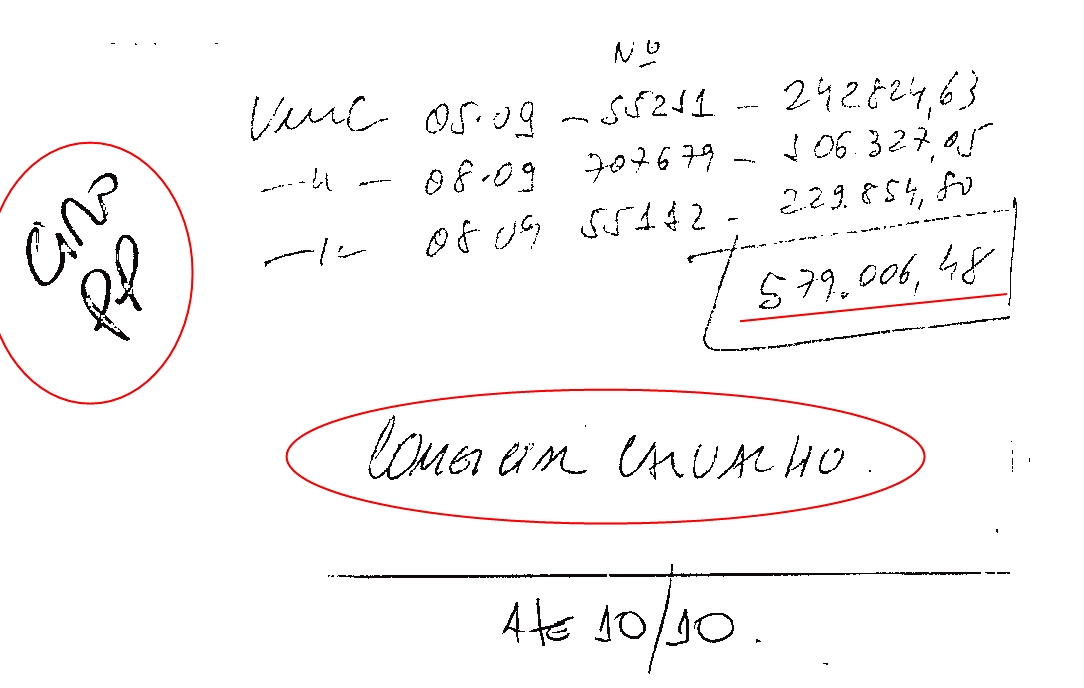 Nº
Venc 05.09 - 55211 - 242824,63
-"- 08.09 707679 - 106.327,05
-"- 08 09 55112 - 229.854,80
579.006,48
Comercial Carvalho.
Até 10/10.